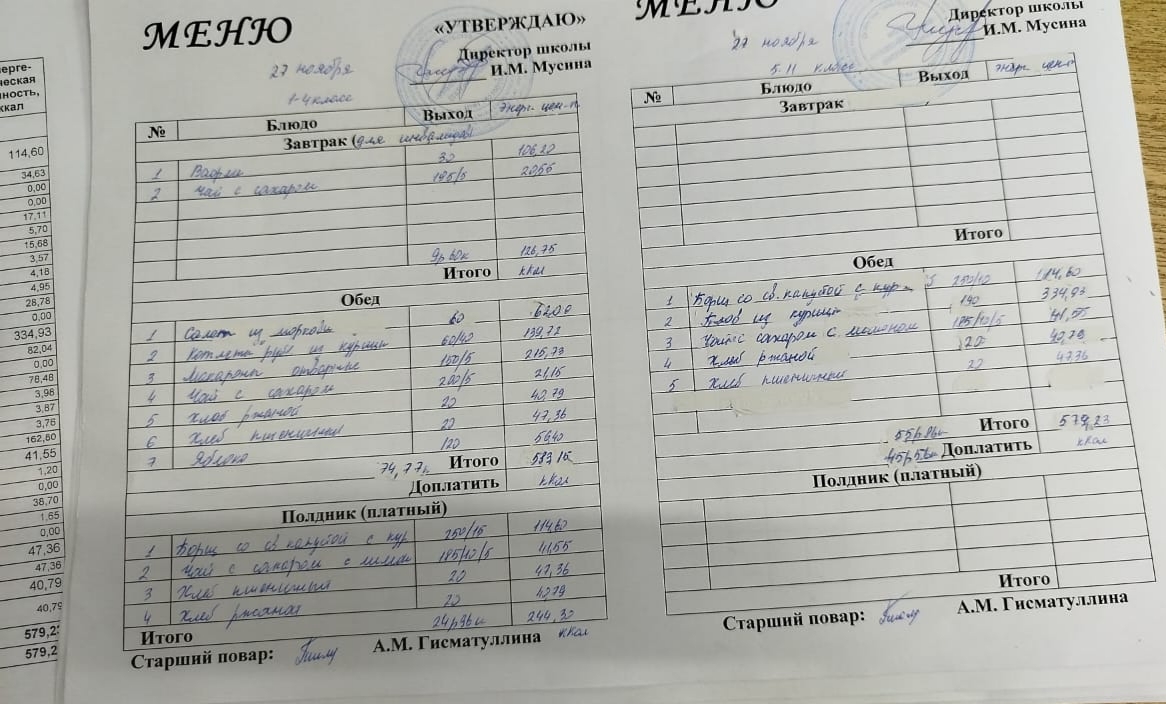 ерге-
ческая
ность,
ккал
114,60
34,63
0,00
0,00
17,11
5,70
15,68
3,57
4,18
4,95
28,78
0,00
334,93
82,04
0,00
78,48
3,98
3,87
3,76
162,80
41,55
1,20
0,00
38,70
1,65
0,00
47,36
47,36
40,79
40,79
579,2
579,2
МЕНЮ
«УТВЕРЖДАЮ»
Директор школы
И.М. Мусина
27 ноября
1-4 класс
№ Блюдо Выход Энерг. цен-ть
Завтрак (для инвалидов)
1 Вафли 30 106,20
2 Чай с сахаром 195/5 20,55
9р 60к 126,75
Итого ккал
Обед
1 Салат из моркови 60 62,00
2 Котлета руб. из курицы 60/40 139,72
3 Макароны отварные 150/5 215,73
4 Чай с сахаром 200/5 21,15
5 Хлеб ржаной 20 40,79
6 Хлеб пшеничный 20 47,36
7 Яблоко 120 56,40
74,77к Итого 583,15
Доплатить ккал
Полдник (платный)
1 Борщ со св капустой с кур 250/15 114,60
2 Чай с сахаром с лимон 185/10/5 41,55
3 Хлеб пшеничный 20 47,36
4 Хлеб ржаной 20 40,79
Итого 24р96к 244,30
ккал
Старший повар: А.М. Гисматуллина
МЕНЮ
Директор школы
И.М. Мусина
27 ноября
5-11 класс
№ Блюдо Выход Энерг. цен-ть
Завтрак
Итого
Обед
1 Борщ со св. капустой с кур 250/10 114,60
2 Плов из курицы 190 334,93
3 Чай с сахаром с лимоном 185/10/5 41,55
4 Хлеб ржаной 20 40,79
5 Хлеб пшеничный 20 47,36
55р86к Итого 579,23
45р56к Доплатить ккал
Полдник (платный)
Итого
Старший повар: А.М. Гисматуллина